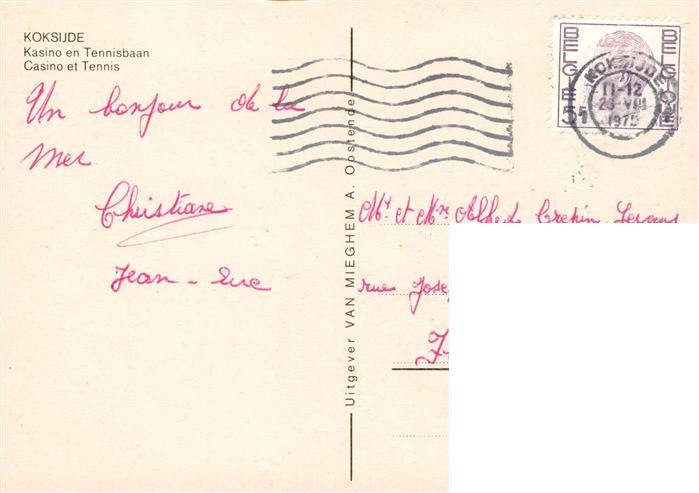 KOKSIJDE
Kasino en Tennisbaan
Casino et Tennis
Un bonjour de la
mer
Christiane
Jean-Luc
Uitgever VAN MIEGHEM A. Oostende
BELGIE BELGIQUE
5F
KOKSIJDE
11-12
1975
Mr et Mme Alfred Crepin
rue